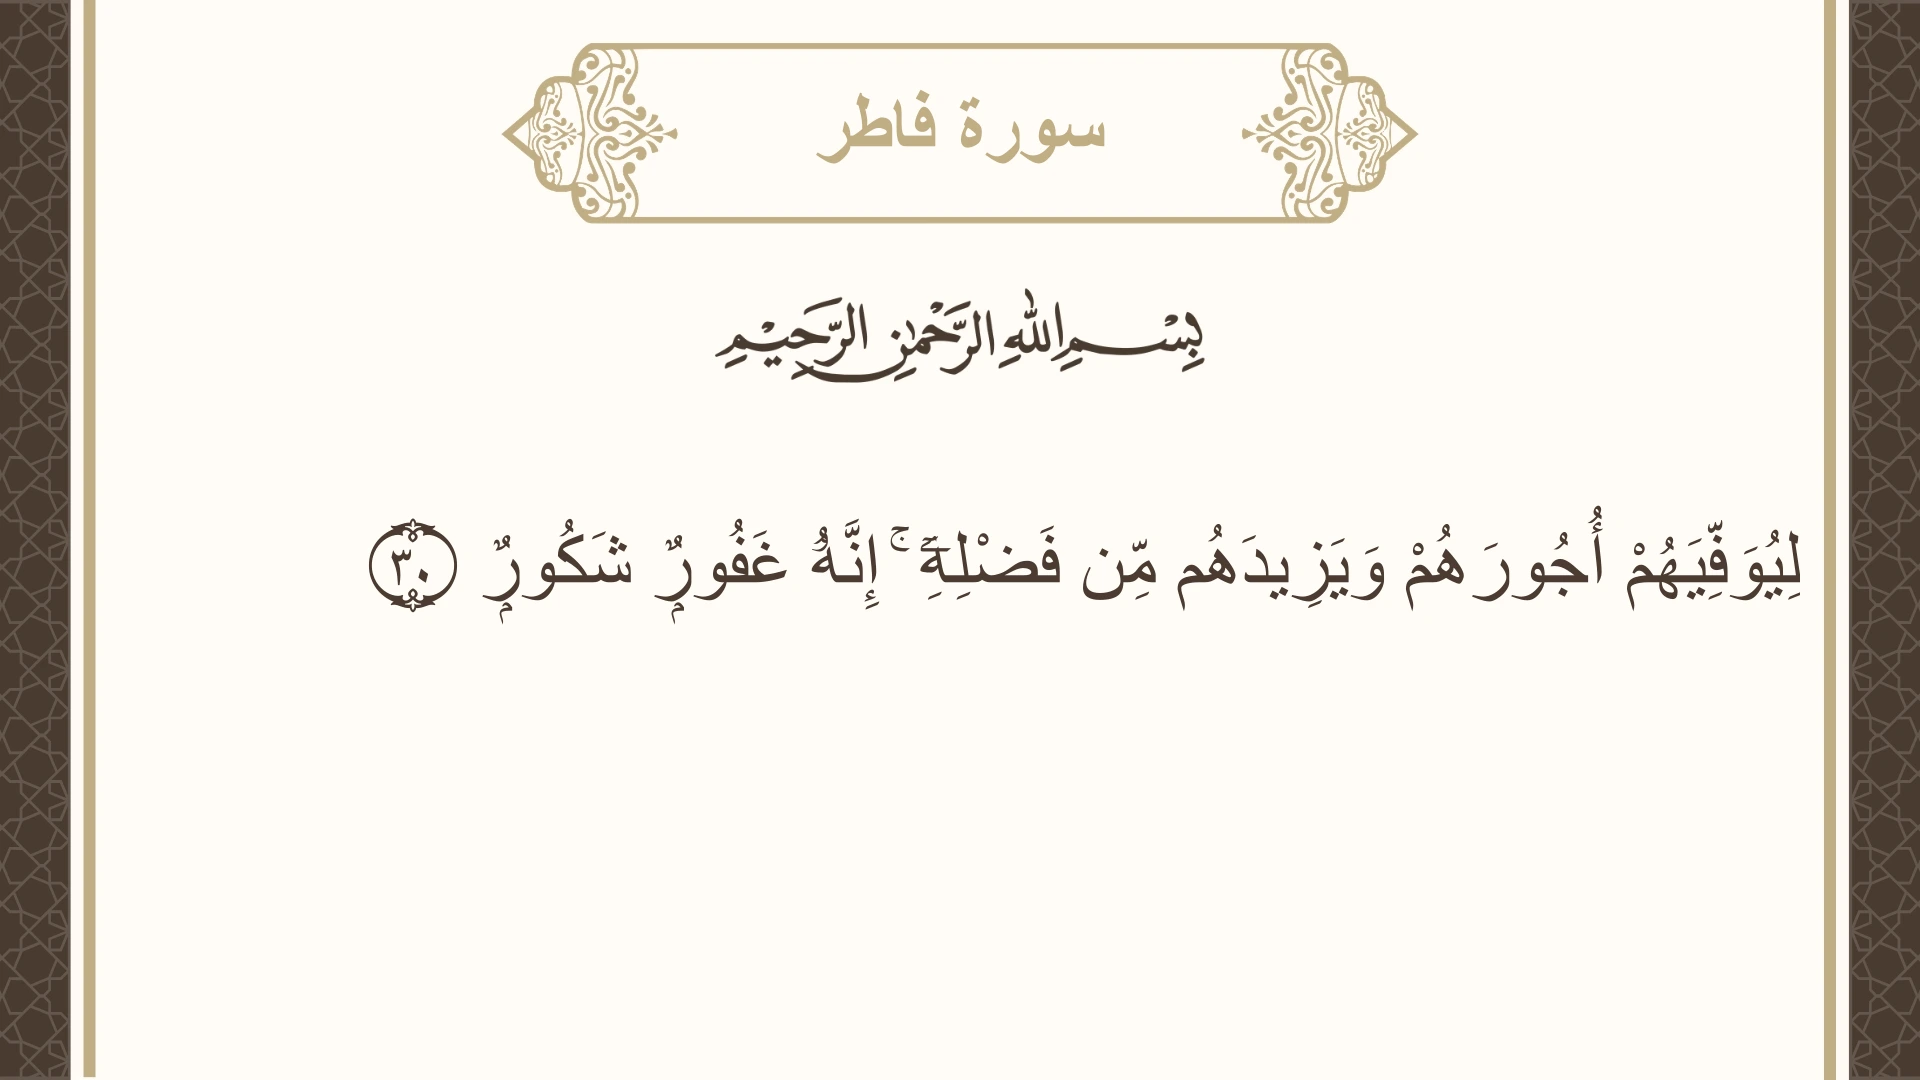 سورة فاطر
بِسْمِ اللهِ الرَّحْمٰنِ الرَّحِيْمِ
لِيُوَفِّيَهُمْ أُجُورَهُمْ وَيَزِيدَهُم مِّن فَضْلِهِۦٓ ۚ إِنَّهُۥ غَفُورٌۭ شَكُورٌۭ ٣٠